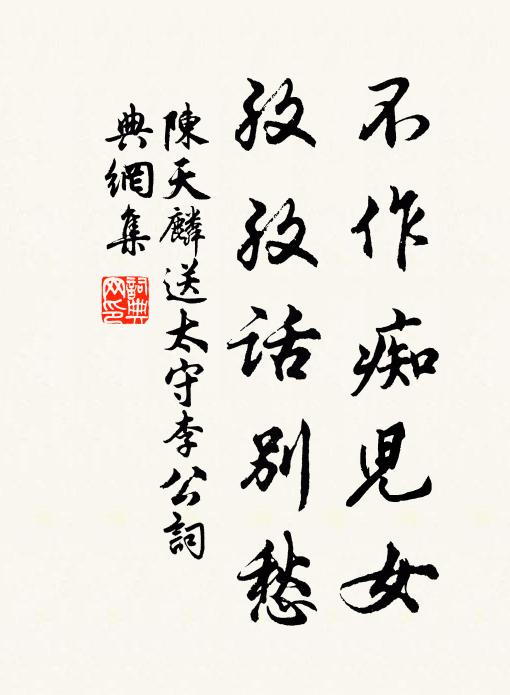 不作痴兒女
孜孜話別愁
陳天麟送太守李公詞
典網集
詞典
网印